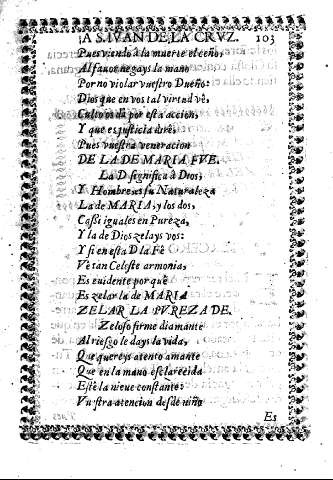 A S. IVAN DE LA CRVZ. 103
Pues viendo à la muerte el ceño,
Al fauor negays la mano
Por no violar vuestro Dueño:
Dios que en vos tal virtud vè,
Culto os dà por esta accion,
Y que es justicia dirè,
Pues vuestra veneracion
DE LA DE MARIA FVE.
La D significa à Dios,
Y Hombre es su Naturaleza
La de MARIA, y los dos,
Cassi iguales en Pureza,
Y la de Dios zelays vos:
Y si en esta D la Fè
Vè tan Celeste armonia,
Es euidente porque
Es zelar la de MARIA
ZELAR LA PVREZA DE.
Zeloso firme diamante
Al riesgo le days la vida,
Que quereys atento amante
Que en la mano esclarecida
Estè la nieue constante:
Vuestra atencion desde niño
Es